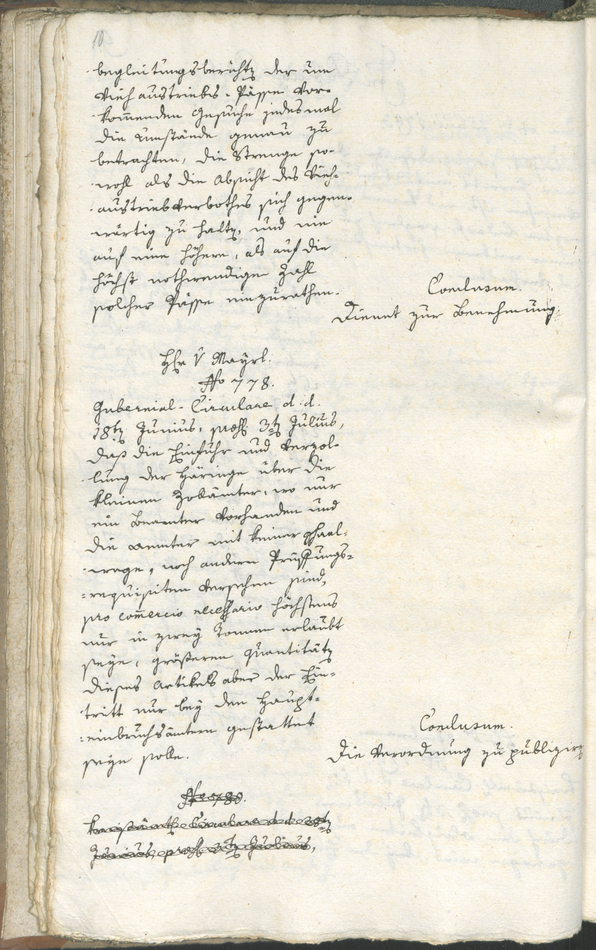 10
begleitungsberichtz der um
Vieh austriebs-Pässe vor-
kommenden Gesuche jedesmal
die Umstände genau zu
betrachten, die Strenge so-
wohl als die Absicht des Vieh-
austriebverbothes sich gegen-
wärtig zu haltz, und nie
auf eine höhere, als auf die
höchst nothwendigen Zahl
solcher Pässe einzurathen.
Conlusum.
Dienet zur Benehmung.
H: v Mayrl.
No 778.
Gubernial-Circulare d. d.
28tz Junius, praes 3tz Julius,
daß die Einfuhr und Verzol-
lung der Häringe über die
kleinen Zolämter, wo nur
ein Beamter vorhanden und
die Aemter mit keiner Schaal-
wage, noch andern Prüfungs-
requisiten versehen sind,
pro commercio necessario höchstens
nur in zwey Tonnen erlaubt
seye, größeren Quantitätz
dieses Artikels aber der Ein-
tritt nur bey den Haupt-
einbruchsämtern gestattet
seyn solle.
Conlusum.
Die Verordnung zu publizirz
No 780.
Circulare d. d. 28tz
Junius, praes 3tz Julius,